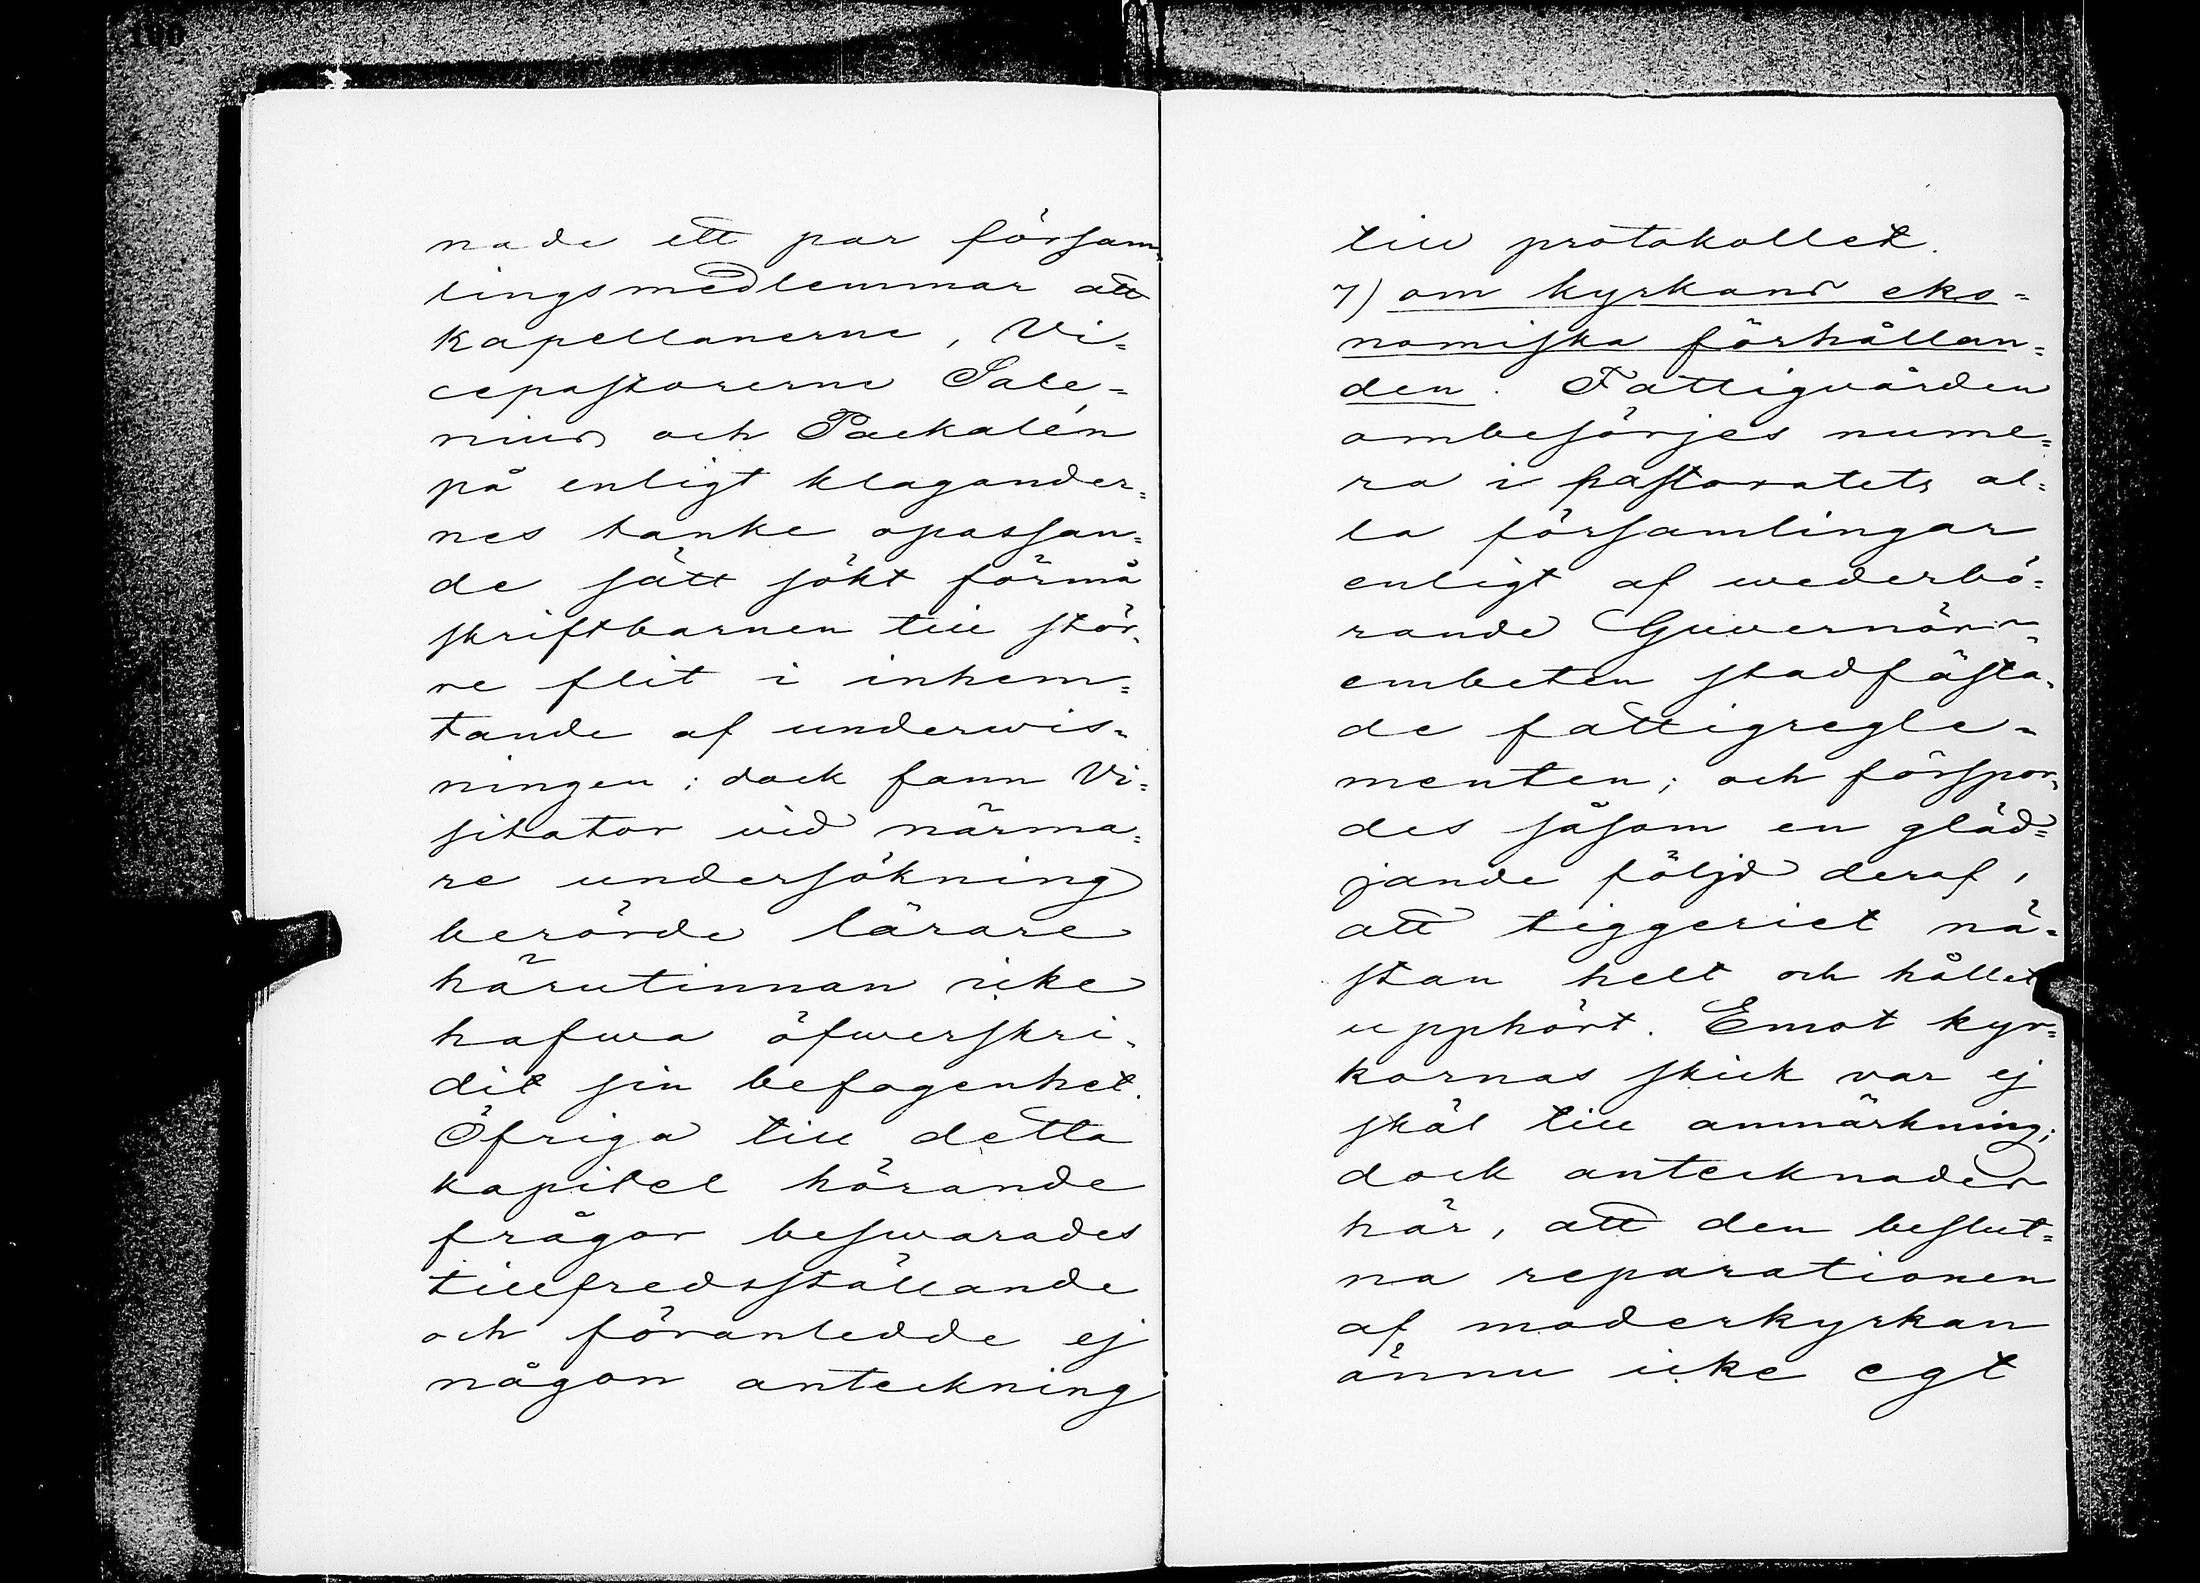 nade ett par försam
lingsmedlemmar att
kapellanerne, Vi=
cepastorerne Salé=
nius och Packalén
på enligt klagander=
nes tanke opassan=
de sätt sökt förmå
skriftbarnen till stör=
re flit i inhem=
tande af underwis=
ningen; dock fann Vi=
sitator vid närma=
re undersökning
berörde lärare
härutinnan icke
hafwa öfwerskri=
dit sin befogenhet.
Öfriga till detta
kapitel hörande
frågor beswarades
tillfredsställande
och föranledde ej
någon anteckning
till protokollet.
7) om kyrkans eko=
nomiska förhållan=
den. Fattigvården
ombesörjes nume=
ra i pastoratets al=
la församlingar
enligt af wederbö=
rande Guvernörs=
embeten stadfästa=
de fattigregle=
menten; och förspor=
des såsom en gläd=
jande följd deraf,
att tiggeriet nä=
stan helt och hållet
upphört. Emot kyr=
kornas skick var ej
skäl till anmärkning;
dock antecknades
här, att den beslut=
na reparationen
af moderkyrkan
ännu icke egt